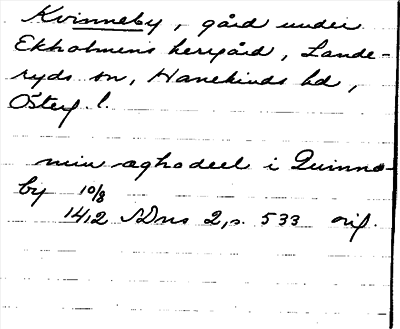 Kvinneby, gård under
Ekholmens herrgård, Lande-
ryds sn, Hanekinds hd,
Österg. l.
min æghodeel i Quinna-
by 10/8
1412 SDns 2, s. 533 orig.